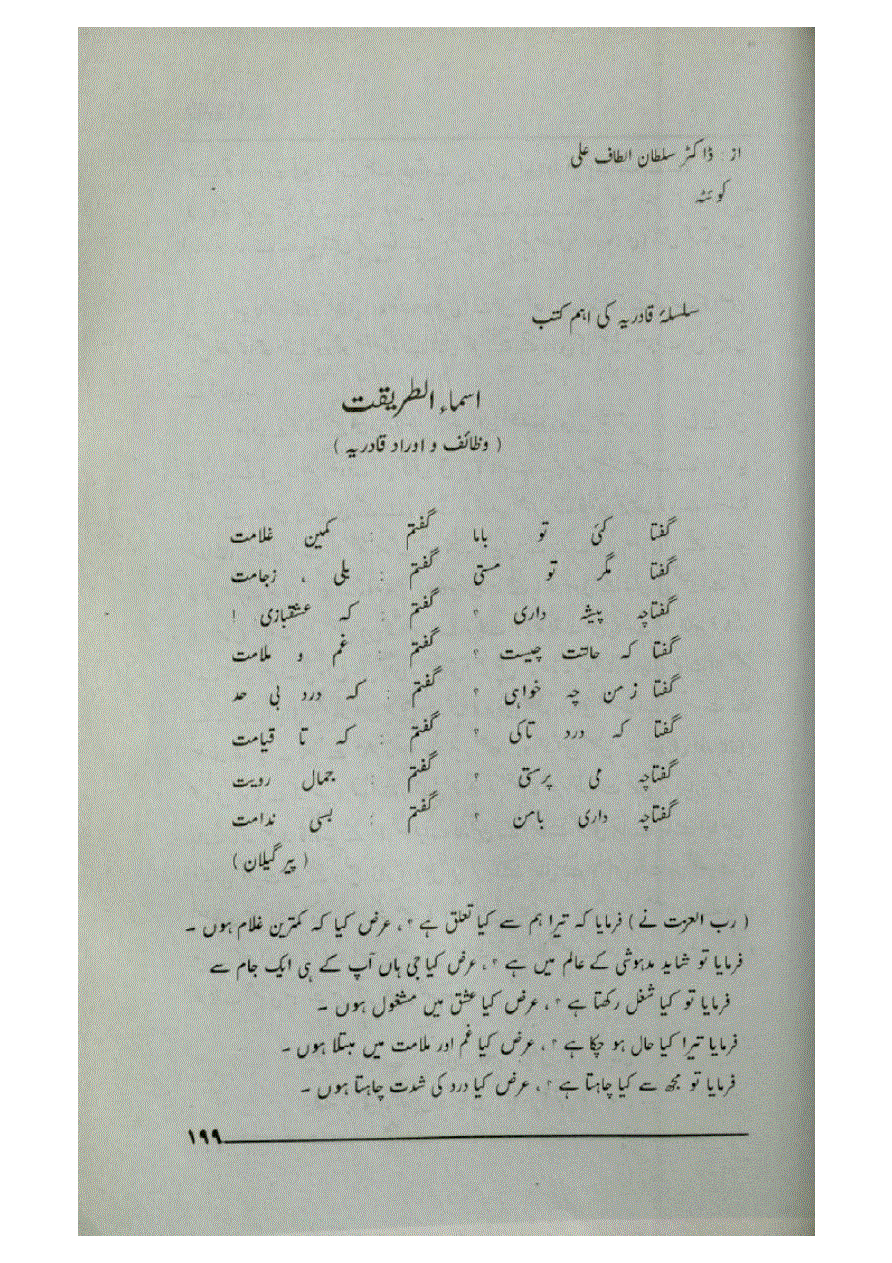 از : ڈاکٹر سلطان الطاف علی
کوئٹہ
سلسلۂ قادریہ کی اہم کتب
اسماء الطریقت
( وظائف و اوراد قادریہ )
گفتا کئی تو باما گفتم : کمین غلامت
گفتا مگر تو مستی گفتم : بلی ، زجامت
گفتاچہ پیشہ داری ؟ گفتم : کہ عشقبازی !
گفتا کہ حالتت چیست ؟ گفتم : غم و ملامت
گفتا زمن چہ خواہی ؟ گفتم : کہ درد بی حد
گفتا کہ درد تاکی ؟ گفتم : کہ تا قیامت
گفتاچہ می پرستی ؟ گفتم : جمال رویت
گفتاچہ داری بامن ؟ گفتم : بسی ندامت
( پیر گیلان )
( رب العزت نے ) فرمایا کہ تیرا ہم سے کیا تعلق ہے ؟ ، عرض کیا کہ کمترین غلام ہوں ۔
فرمایا تو شاید مدہوشی کے عالم میں ہے ؟ ، عرض کیا جی ہاں آپ کے ہی ایک جام سے
فرمایا تو کیا شغل رکھتا ہے ؟ ، عرض کیا عشق میں مشغول ہوں ۔
فرمایا تیرا کیا حال ہو چکا ہے ؟ ، عرض کیا غم اور ملامت میں مبتلا ہوں ۔
فرمایا تو مجھ سے کیا چاہتا ہے ؟ ، عرض کیا درد کی شدت چاہتا ہوں ۔
۱۹۹